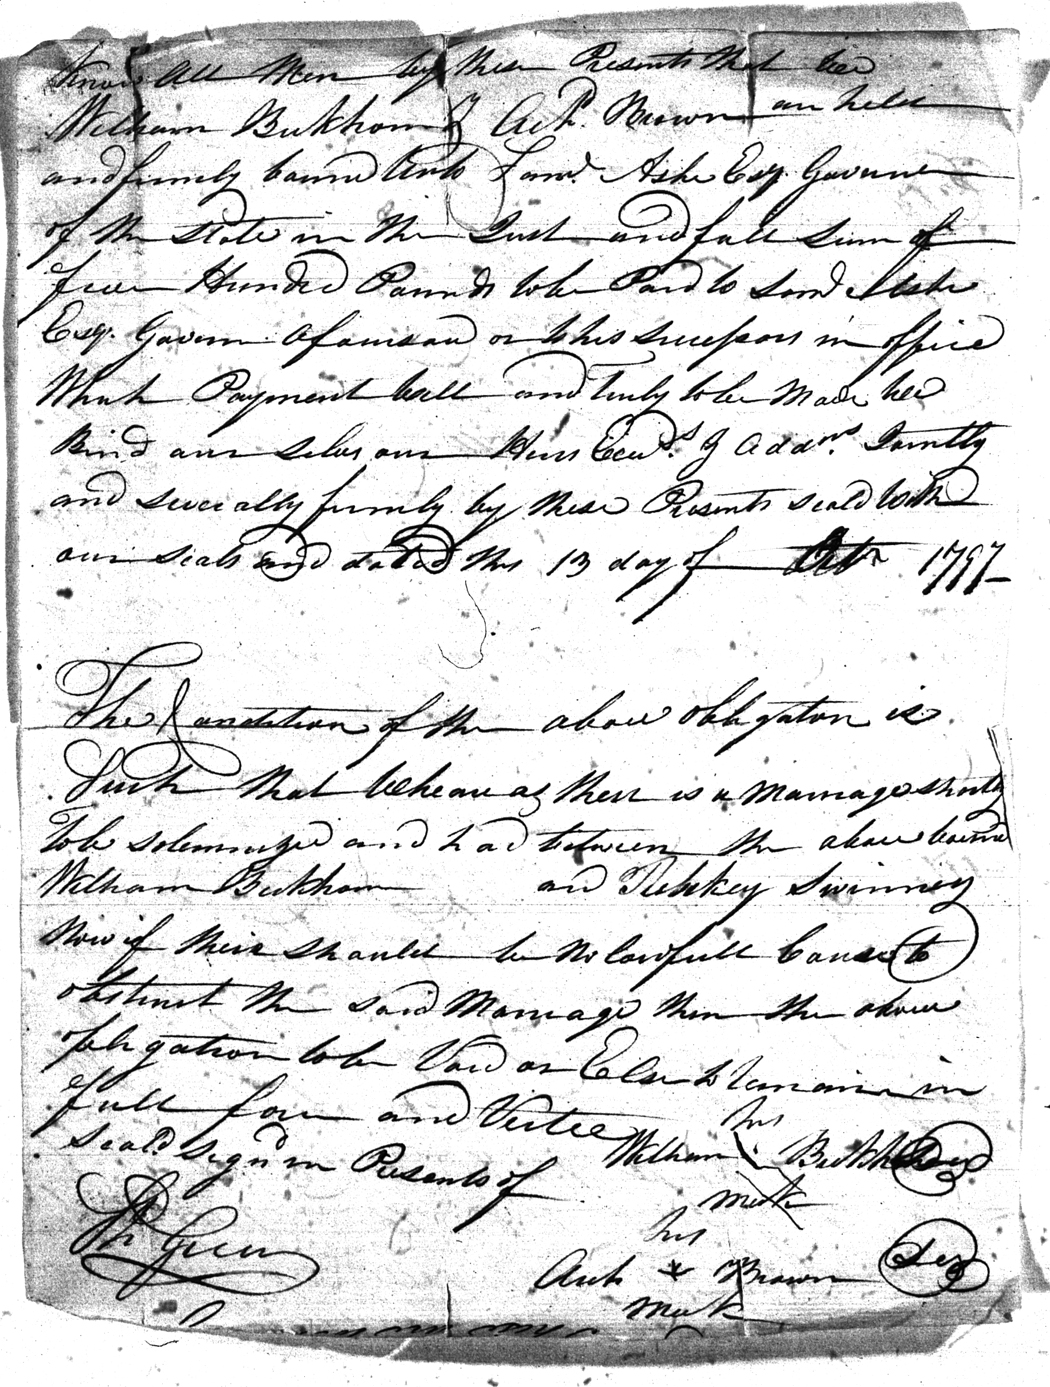 Know All Men by these Presents that wee
William Bickham & Arch. Brown are held
and firmly bound Unto Saml. Ashe Esqr. Governer
of the State in the Just and full Sum of
five Hundred Pounds to be Paid to Saml Ashe
Esqr. Govern Aforisaid or to his Successors in office
Which Payment will and Truly to be Made we
Bind our Selves our Heirs Execrs. & Addmrs. Jointly
and severally firmly by these Presents seald with
our seals and dated this 13 day of Octr 1797
The Condition of the above obligation is
Such that Wheare as there is a Marriage shortly
to be solemnized and had between the above bound
William Bickham and Swinney
Now if their should be no lawfull Cause to
obstruct the said Marriage then the above
obligation to be Void or Else to Remain in
full force and Vertue
Seald Signd in Presents of
his
William Bickham Seal
mark
his
Arch x Brown Seal
mark
Green